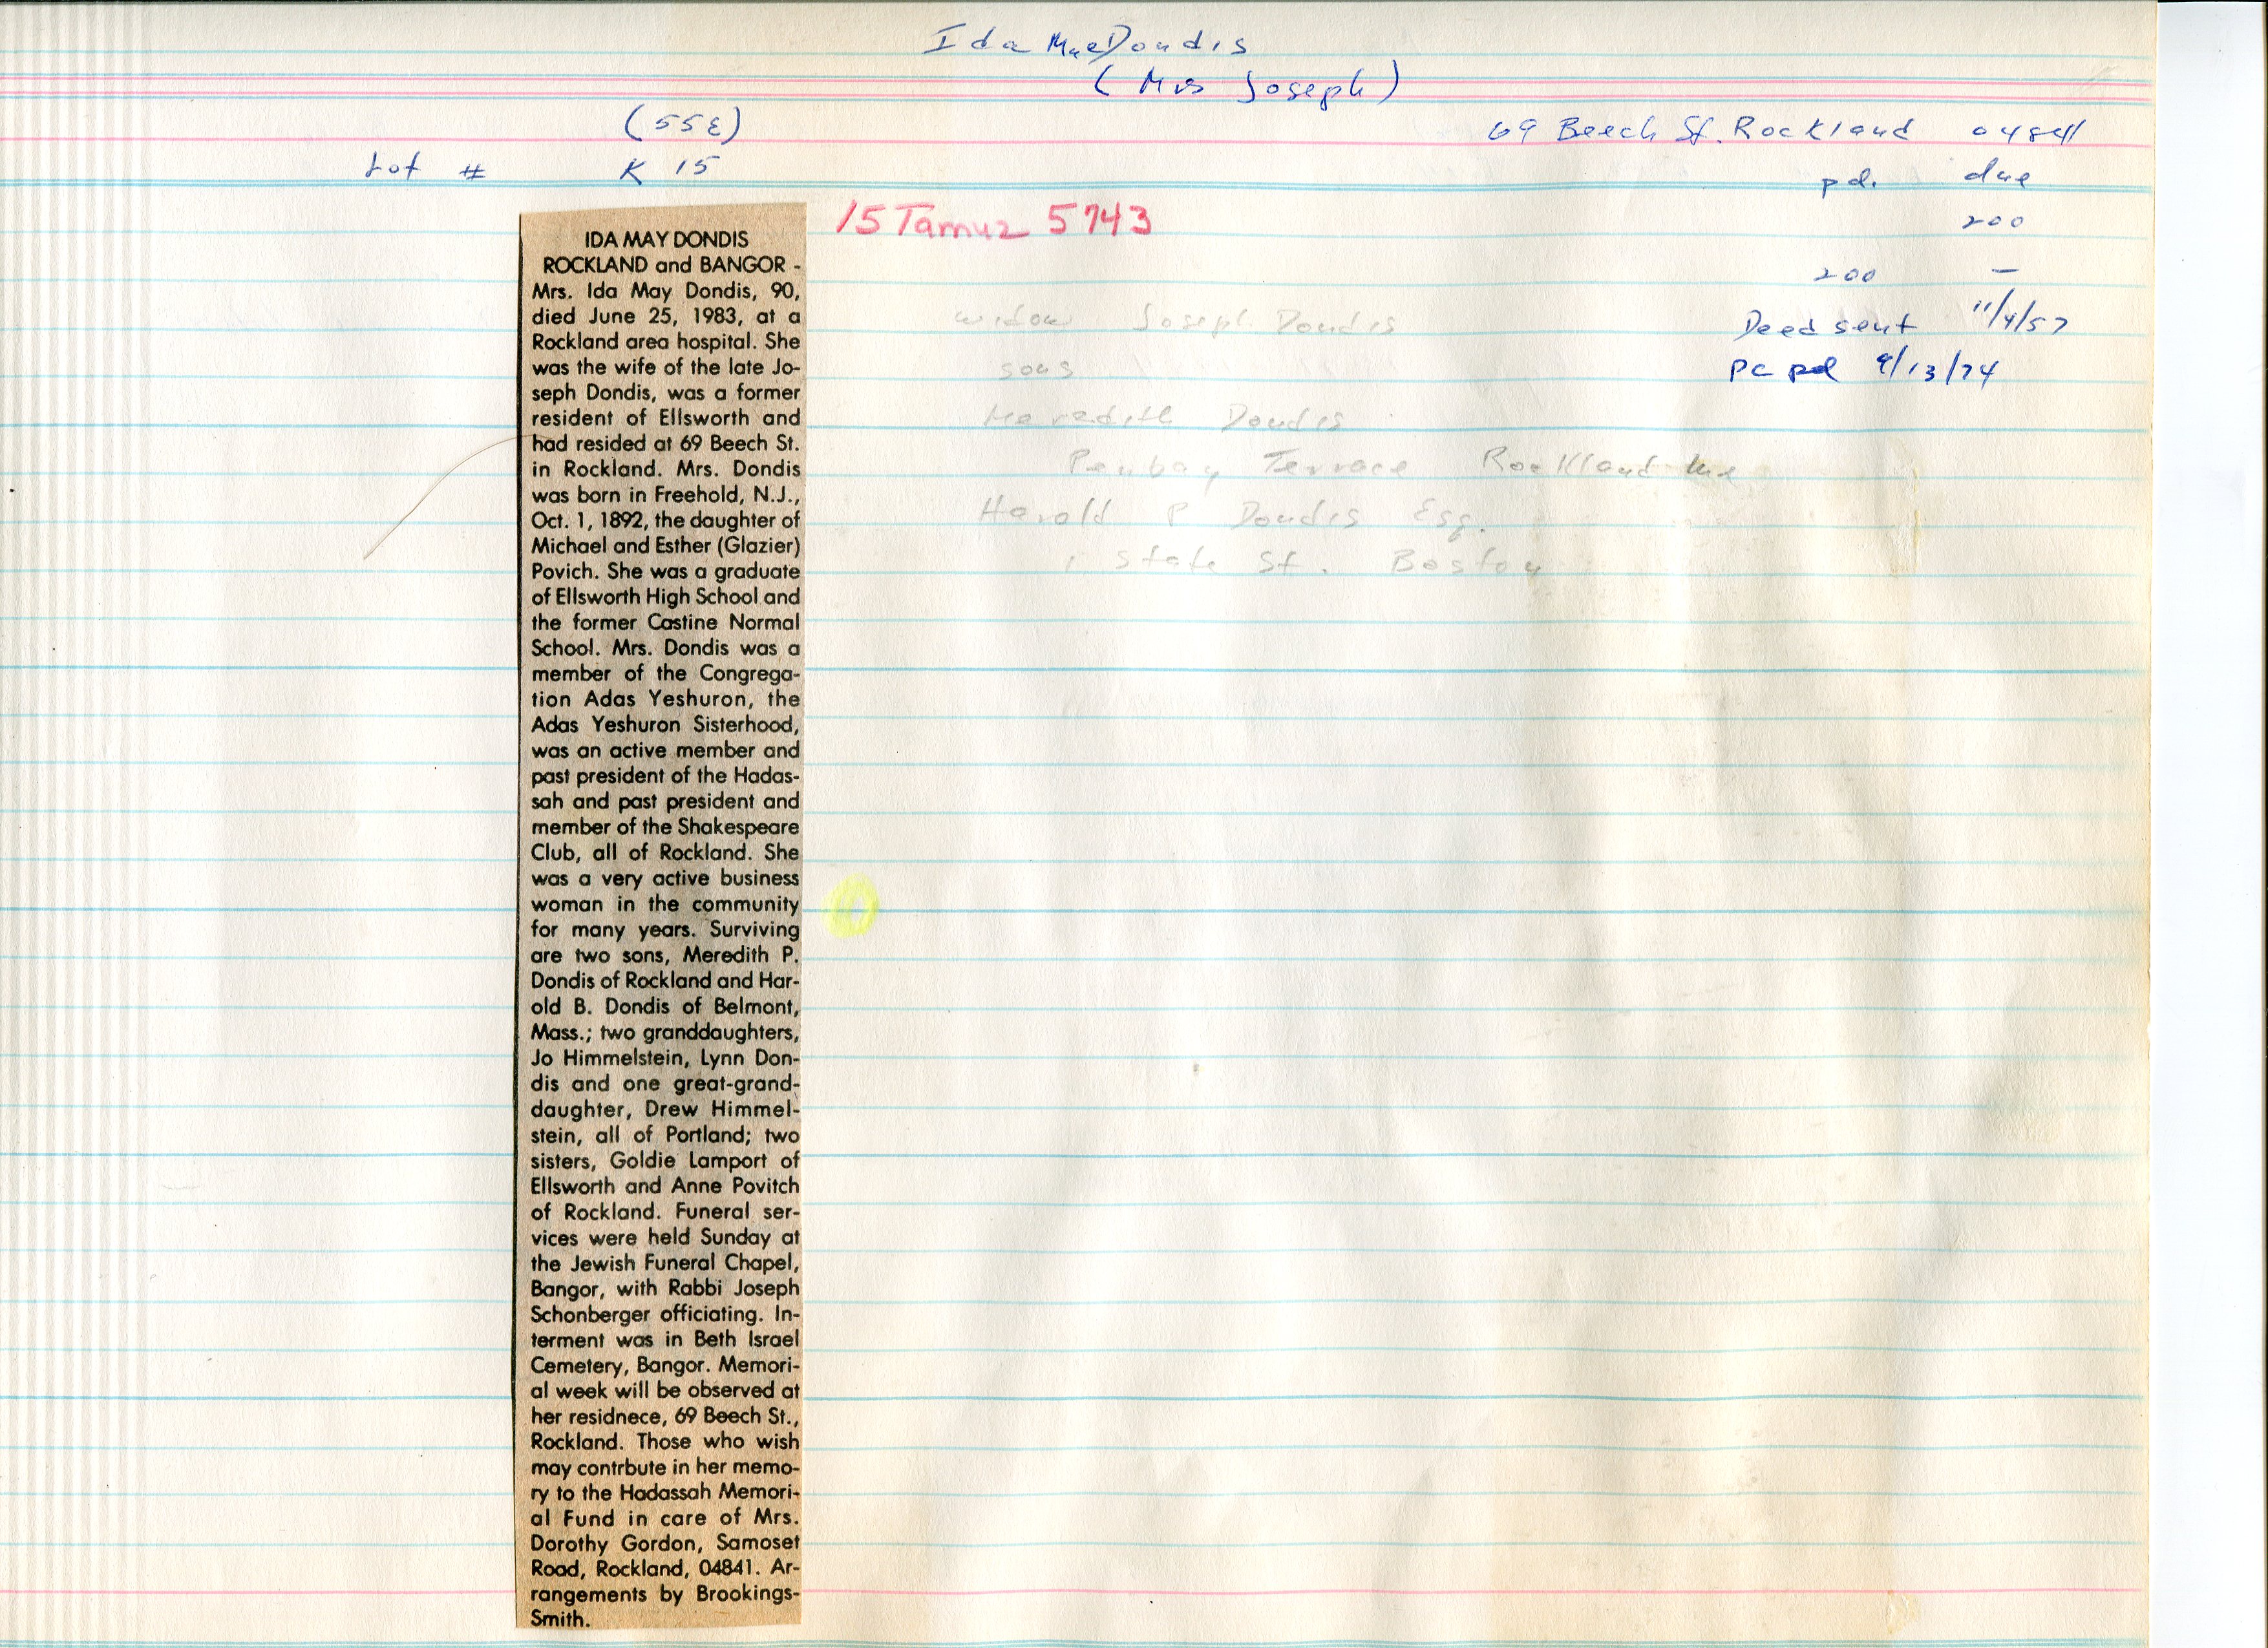 Ida Mae Dondis
(Mrs Joseph)
(55E)
69 Beech St. Rockland 04841
Lot # K 15
pd. due
200
200 —
Deed sent 11/4/57
PC pd 9/13/74
15 Tamuz 5743
widow Joseph Dondis
sons
Meredith Dondis
Penbay Terrace Rockland Me
Harold P Dondis Esq.
1 State St. Boston
IDA MAY DONDIS
ROCKLAND and BANGOR -
Mrs. Ida May Dondis, 90,
died June 25, 1983, at a
Rockland area hospital. She
was the wife of the late Jo-
seph Dondis, was a former
resident of Ellsworth and
had resided at 69 Beech St.
in Rockland. Mrs. Dondis
was born in Freehold, N.J.,
Oct. 1, 1892, the daughter of
Michael and Esther (Glazier)
Povich. She was a graduate
of Ellsworth High School and
the former Castine Normal
School. Mrs. Dondis was a
member of the Congrega-
tion Adas Yeshuron, the
Adas Yeshuron Sisterhood,
was an active member and
past president of the Hadas-
sah and past president and
member of the Shakespeare
Club, all of Rockland. She
was a very active business
woman in the community
for many years. Surviving
are two sons, Meredith P.
Dondis of Rockland and Har-
old B. Dondis of Belmont,
Mass.; two granddaughters,
Jo Himmelstein, Lynn Don-
dis and one great-grand-
daughter, Drew Himmel-
stein, all of Portland; two
sisters, Goldie Lamport of
Ellsworth and Anne Povitch
of Rockland. Funeral ser-
vices were held Sunday at
the Jewish Funeral Chapel,
Bangor, with Rabbi Joseph
Schonberger officiating. In-
terment was in Beth Israel
Cemetery, Bangor. Memori-
al week will be observed at
her residnece, 69 Beech St.,
Rockland. Those who wish
may contrbute in her memo-
ry to the Hadassah Memori-
al Fund in care of Mrs.
Dorothy Gordon, Samoset
Road, Rockland, 04841. Ar-
rangements by Brookings-
Smith.